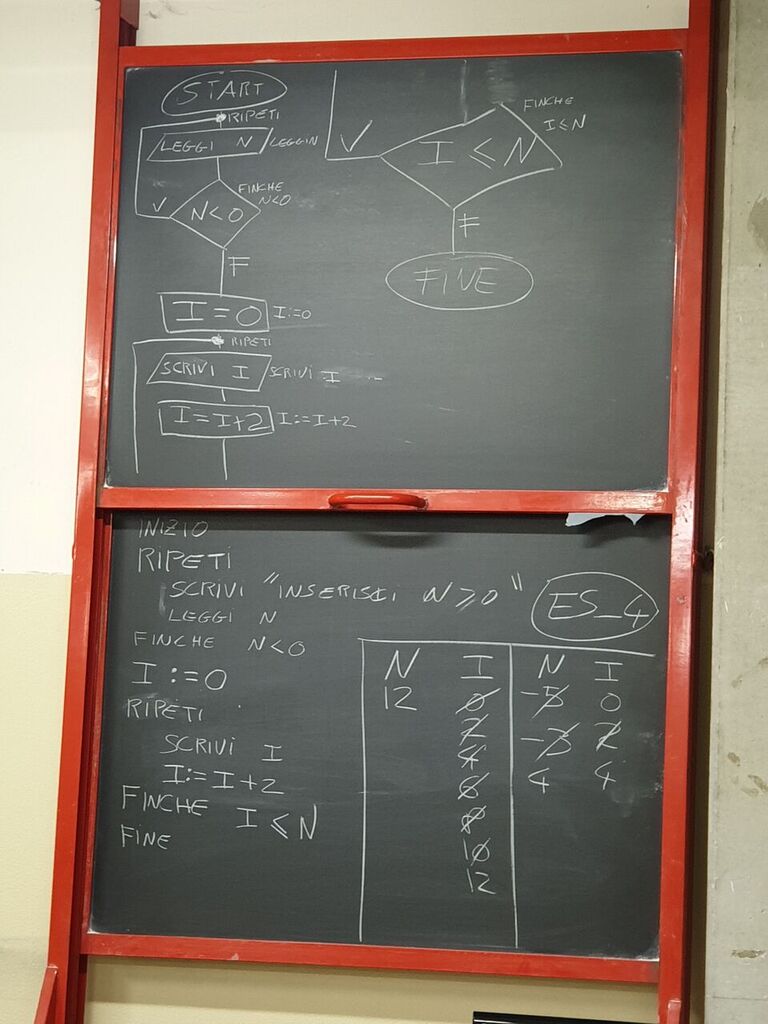 START
RIPETI
LEGGI N
LEGGI N
FINCHE
N<0
V
N<0
F
I=0
I:=0
RIPETI
SCRIVI I
SCRIVI I
I=I+2
I:=I+2
FINCHE
I≤N
V
I≤N
F
FINE
INIZIO
RIPETI
SCRIVI "INSERISCI N≥0"
LEGGI N
FINCHE N<0
I:=0
RIPETI
SCRIVI I
I:=I+2
FINCHE I≤N
FINE
ES_4
N I N I
12 0 -5 0
2 -3 2
4 4 4
6
8
10
12